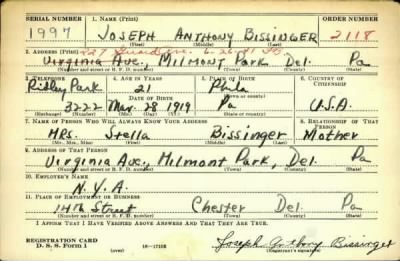 SERIAL NUMBER 1. NAME (Print) ORDER NUMBER
1997 JOSEPH ANTHONY BISSINGER 2118
(First) (Middle) (Last)
2. ADDRESS (Print)
Virginia Ave., Milmont Park Del. Pa
(Number and street or R. F. D. number) (Town) (County) (State)
3. TELEPHONE 4. AGE IN YEARS 5. PLACE OF BIRTH 6. COUNTRY OF CITIZENSHIP
Ridley Park 21 Phila
DATE OF BIRTH (Town or county)
3222 Mar. 28 1919 Pa U.S.A.
(Exchange) (Number) (Mo.) (Day) (Yr.) (State or country)
7. NAME OF PERSON WHO WILL ALWAYS KNOW YOUR ADDRESS 8. RELATIONSHIP OF THAT PERSON
Mrs. Stella Bissinger Mother
(Mr., Mrs., Miss) (First) (Middle) (Last)
9. ADDRESS OF THAT PERSON
Virginia Ave., Milmont Park, Del. Pa
(Number and street or R. F. D. number) (Town) (County) (State)
10. EMPLOYER'S NAME
N.Y.A.
11. PLACE OF EMPLOYMENT OR BUSINESS
14th Street Chester Del. Pa
(Number and street or R. F. D. number) (Town) (County) (State)
I AFFIRM THAT I HAVE VERIFIED ABOVE ANSWERS AND THAT THEY ARE TRUE.
REGISTRATION CARD
D. S. S. Form 1 (over) 16-17105 Joseph Anthony Bissinger
(Registrant's signature)